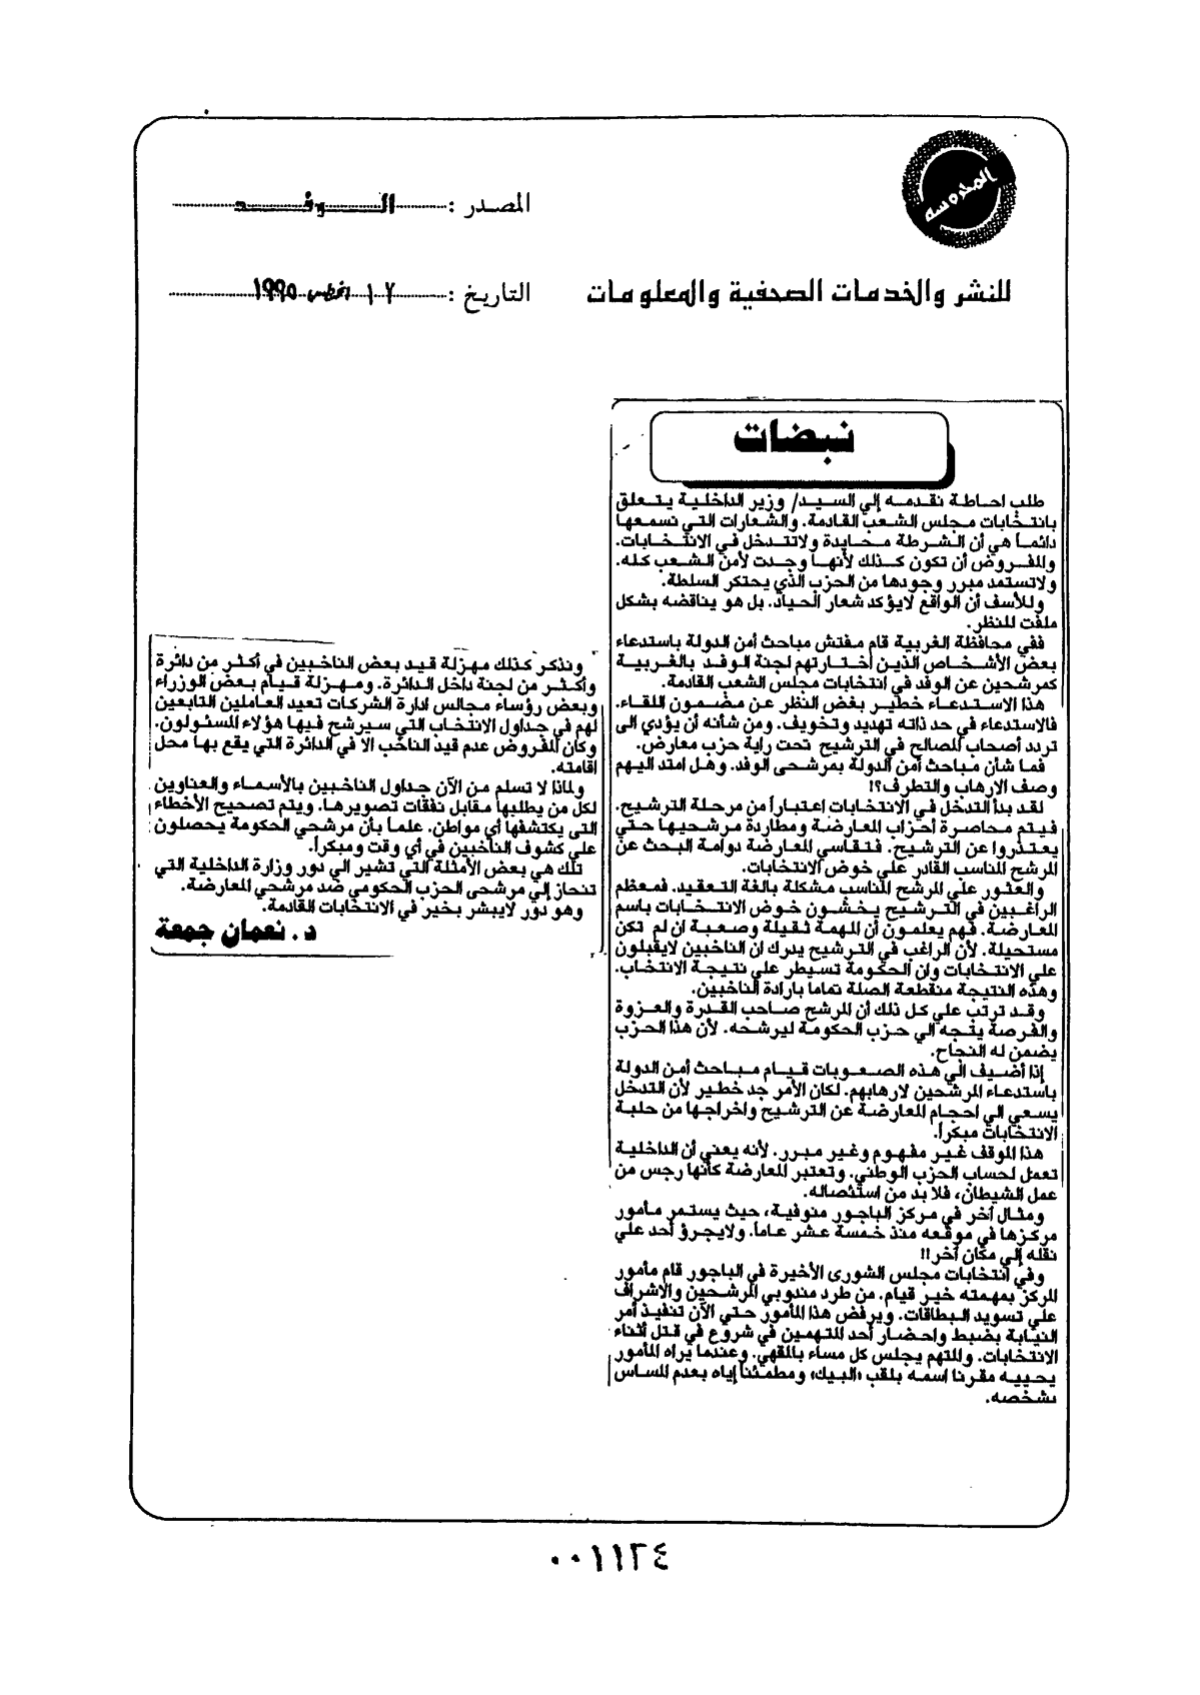 المحروسة
المصدر : الوفد
للنشر والخدمات الصحفية والمعلومات
التاريخ : أغسطس ١٩٩٥
نبضات
طلب احاطة نقدمه إلي السيد/ وزير الداخلية يتعلق
بانتخابات مجلس الشعب القادمة. والشعارات التي نسمعها
دائماً هي أن الشرطة محايدة ولاتتدخل في الانتخابات.
والمفروض أن تكون كذلك لأنها وجدت لأمن الشعب كله.
ولاتستمد مبرر وجودها من الحزب الذي يحتكر السلطة.
وللأسف أن الواقع لايؤكد شعار الحياد. بل هو يناقضه بشكل
ملفت للنظر.
ففي محافظة الغربية قام مفتش مباحث أمن الدولة باستدعاء
بعض الأشخاص الذين اختارتهم لجنة الوفد بالغربية
كمرشحين عن الوفد في انتخابات مجلس الشعب القادمة.
هذا الاستدعاء خطير بغض النظر عن مضمون اللقاء.
فالاستدعاء في حد ذاته تهديد وتخويف. ومن شأنه أن يؤدي الى
تردد أصحاب المصالح في الترشيح تحت راية حزب معارض.
فما شأن مباحث أمن الدولة بمرشحى الوفد. وهل امتد اليهم
وصف الارهاب والتطرف؟!
لقد بدأ التدخل في الانتخابات اعتباراً من مرحلة الترشيح.
فيتم محاصرة أحزاب المعارضة ومطاردة مرشحيها حتي
يعتذروا عن الترشيح. فتقاسي المعارضة دوامة البحث عن
المرشح المناسب القادر علي خوض الانتخابات.
والعثور علي المرشح المناسب مشكلة بالغة التعقيد. فمعظم
الراغبين في الترشيح يخشون خوض الانتخابات باسم
المعارضة. فهم يعلمون أن المهمة ثقيلة وصعبة ان لم تكن
مستحيلة. لأن الراغب في الترشيح يدرك ان الناخبين لايقبلون
علي الانتخابات وان الحكومة تسيطر علي نتيجة الانتخاب.
وهذه النتيجة منقطعة الصلة تماما بارادة الناخبين.
وقد ترتب علي كل ذلك أن المرشح صاحب القدرة والعزوة
والفرصة يتجه الي حزب الحكومة ليرشحه. لأن هذا الحزب
يضمن له النجاح.
إذا أضيف الي هذه الصعوبات قيام مباحث أمن الدولة
باستدعاء المرشحين لارهابهم. لكان الأمر جد خطير لأن التدخل
يسعي الي احجام المعارضة عن الترشيح واخراجها من حلبة
الانتخابات مبكراً.
هذا الموقف غير مفهوم وغير مبرر. لأنه يعني أن الداخلية
تعمل لحساب الحزب الوطني. وتعتبر المعارضة كأنها رجس من
عمل الشيطان، فلا بد من استئصاله.
ومثال آخر في مركز الباجور منوفية، حيث يستمر مأمور
مركزها في موقعه منذ خمسة عشر عاماً. ولايجرؤ أحد علي
نقله إلي مكان آخر!!
وفي انتخابات مجلس الشورى الأخيرة في الباجور قام مأمور
المركز بمهمته خير قيام. من طرد مندوبي المرشحين والاشراف
علي تسويد البطاقات. ويرفض هذا المأمور حتي الآن تنفيذ أمر
النيابة بضبط واحضار أحد المتهمين في شروع في قتل أثناء
الانتخابات. والمتهم يجلس كل مساء بالمقهي. وعندما يراه المأمور
يحييه مقرنا اسمه بلقب «البيك» ومطمئنا إياه بعدم المساس
بشخصه.
ونذكر كذلك مهزلة قيد بعض الناخبين في أكثر من دائرة
وأكثر من لجنة داخل الدائرة. ومهزلة قيام بعض الوزراء
وبعض رؤساء مجالس ادارة الشركات تعيد العاملين التابعين
لهم في جداول الانتخاب التي سيرشح فيها هؤلاء المسئولون.
وكان المفروض عدم قيد الناخب الا في الدائرة التي يقع بها محل
اقامته.
ولماذا لا تسلم من الآن جداول الناخبين بالأسماء والعناوين
لكل من يطلبها مقابل نفقات تصويرها. ويتم تصحيح الأخطاء
التى يكتشفها أي مواطن. علماً بأن مرشحي الحكومة يحصلون
علي كشوف الناخبين في أي وقت ومبكراً.
تلك هي بعض الأمثلة التي تشير الي دور وزارة الداخلية التي
تنحاز إلي مرشحى الحزب الحكومي ضد مرشحي المعارضة.
وهو دور لايبشر بخير في الانتخابات القادمة.
د. نعمان جمعة
٠٠١١٢٤